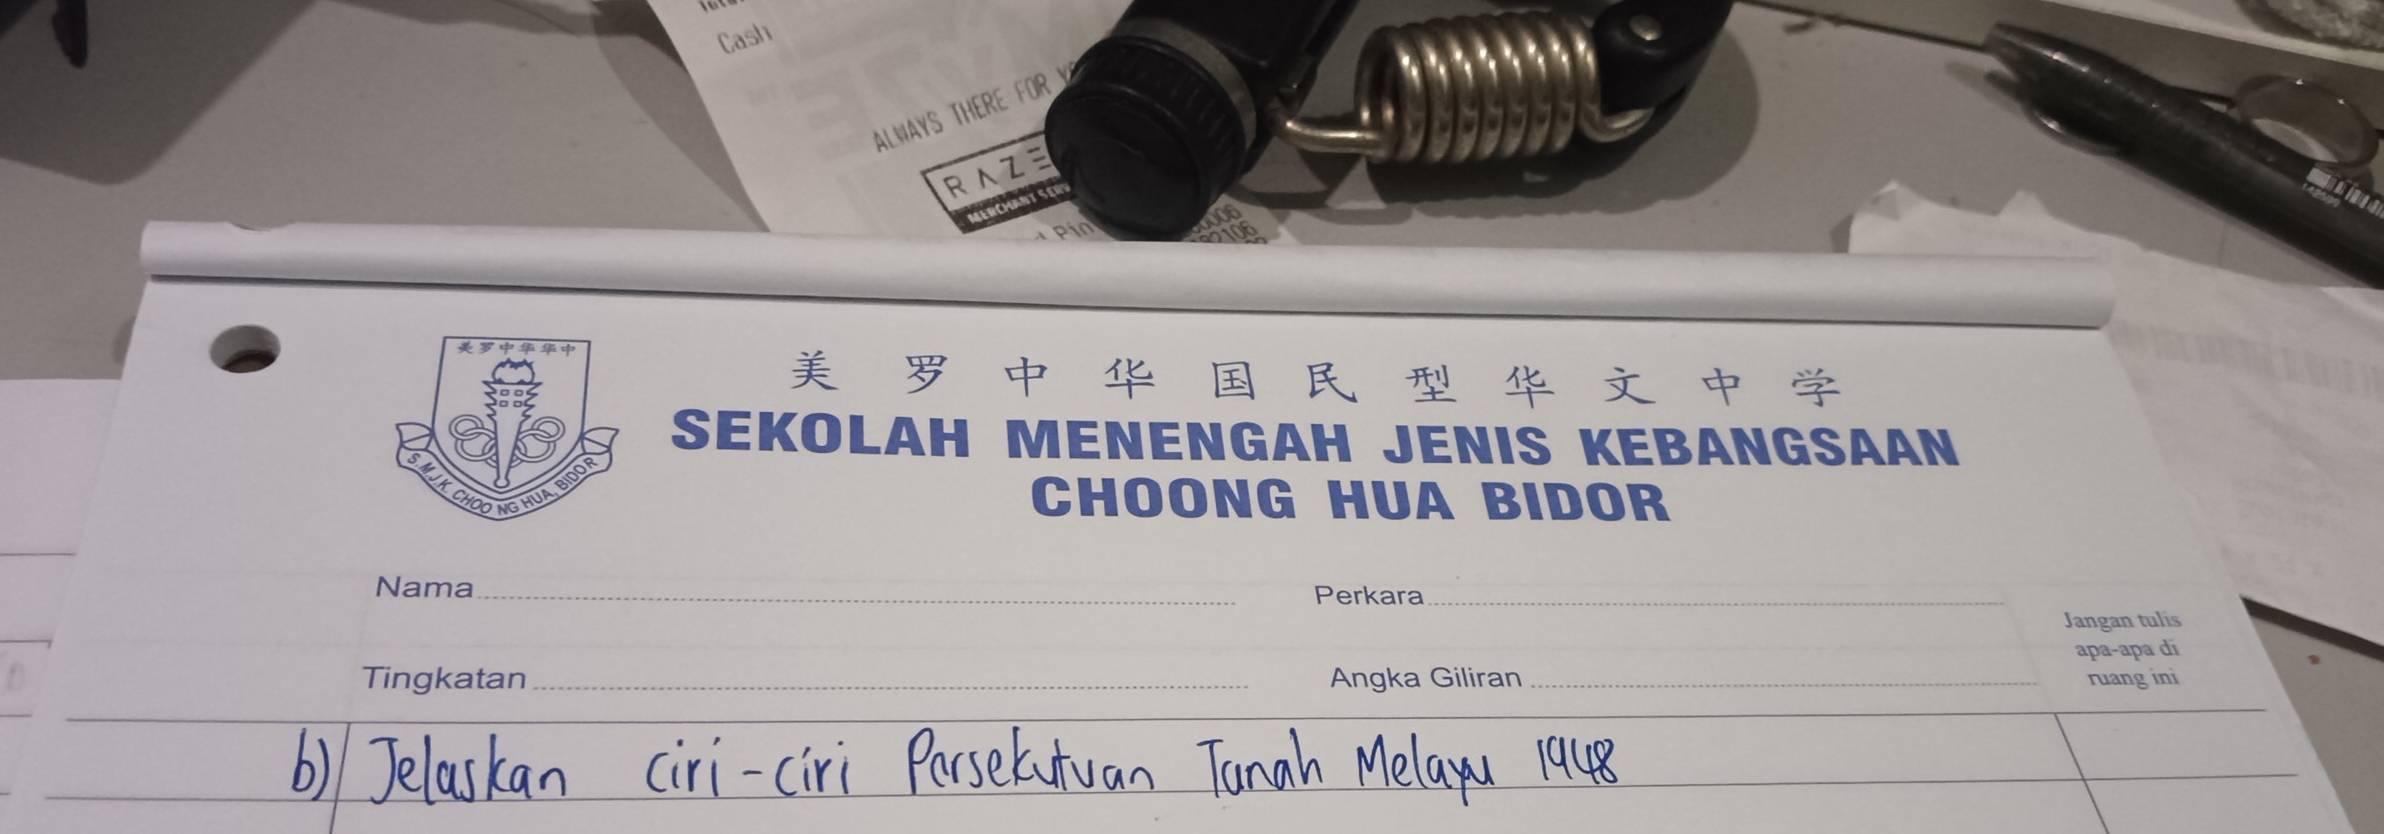 Cash
ALWAYS THERE FOR
RAZE
MERCHANT
Pin
美罗中华华中
S.M.J.K. CHOONG HUA, BIDOR
美罗中华国民型华文中学
SEKOLAH MENENGAH JENIS KEBANGSAAN
CHOONG HUA BIDOR
Nama
Perkara
Tingkatan
Angka Giliran
Jangan tulis
apa-apa di
ruang ini
b) Jelaskan ciri-ciri Persekutuan Tanah Melayu 1948